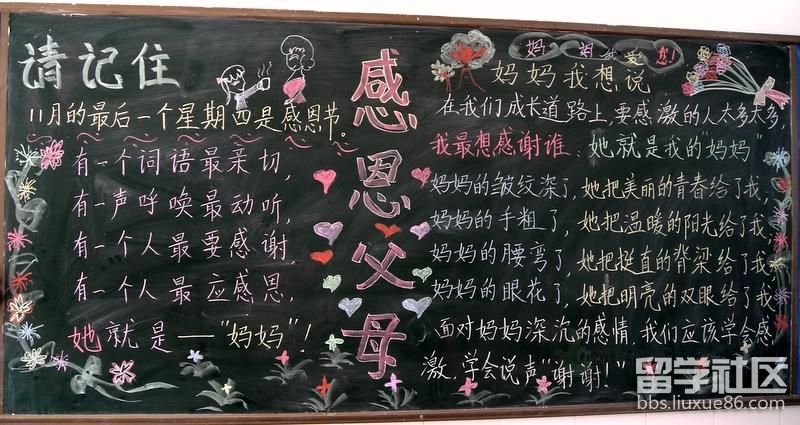 请记住
11月的最后一个星期四是感恩节。
有一个词语最亲切,
有一声呼唤最动听,
有一个人最要感谢,
有一个人最应感恩,
她就是——“妈妈”!
感恩父母
妈妈我爱您!
妈妈我想说
在我们成长道路上,要感激的人太多太多,
我最想感谢谁:她就是我的“妈妈”
妈妈的皱纹深了,她把美丽的青春给了我;
妈妈的手粗了,她把温暖的阳光给了我;
妈妈的腰弯了,她把挺直的脊梁给了我;
妈妈的眼花了,她把明亮的双眼给了我
面对妈妈深沉的感情,我们应该学会感
激,学会说声“谢谢!”
留学社区
bbs.liuxue86.com